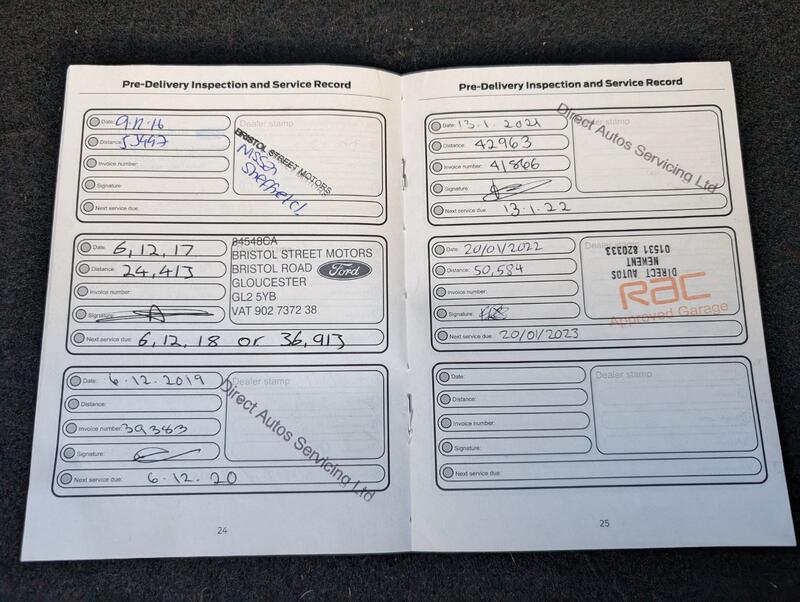 Pre-Delivery Inspection and Service Record
Date: 9.12.16
Dealer stamp
Distance:
BRISTOL STREET MOTORS
Invoice number:
Sheffield
Signature:
Next service due:
Date: 6,12,17
Distance: 24,413
Invoice number:
Signature:
84548CA
BRISTOL STREET MOTORS
BRISTOL ROAD Ford
GLOUCESTER
GL2 5YB
VAT 902 7372 38
Next service due: 6,12,18 or 36,913
Date: 6.12.2019
Dealer stamp
Distance:
Invoice number: 39383
Signature:
Direct Autos Servicing Ltd
Next service due: 6.12.20
24
Pre-Delivery Inspection and Service Record
Date: 13.1.2021
Dealer stamp
Distance: 42963
Invoice number: 41866
Signature:
Direct Autos Servicing Ltd
Next service due: 13.1.22
Date: 20/01/2022
Distance: 50,584
Invoice number:
Signature:
DIRECT AUTOS
NEWENT
01531 820333
RAC
Approved Garage
Next service due: 20/01/2023
Date:
Dealer stamp
Distance:
Invoice number:
Signature:
Next service due:
25